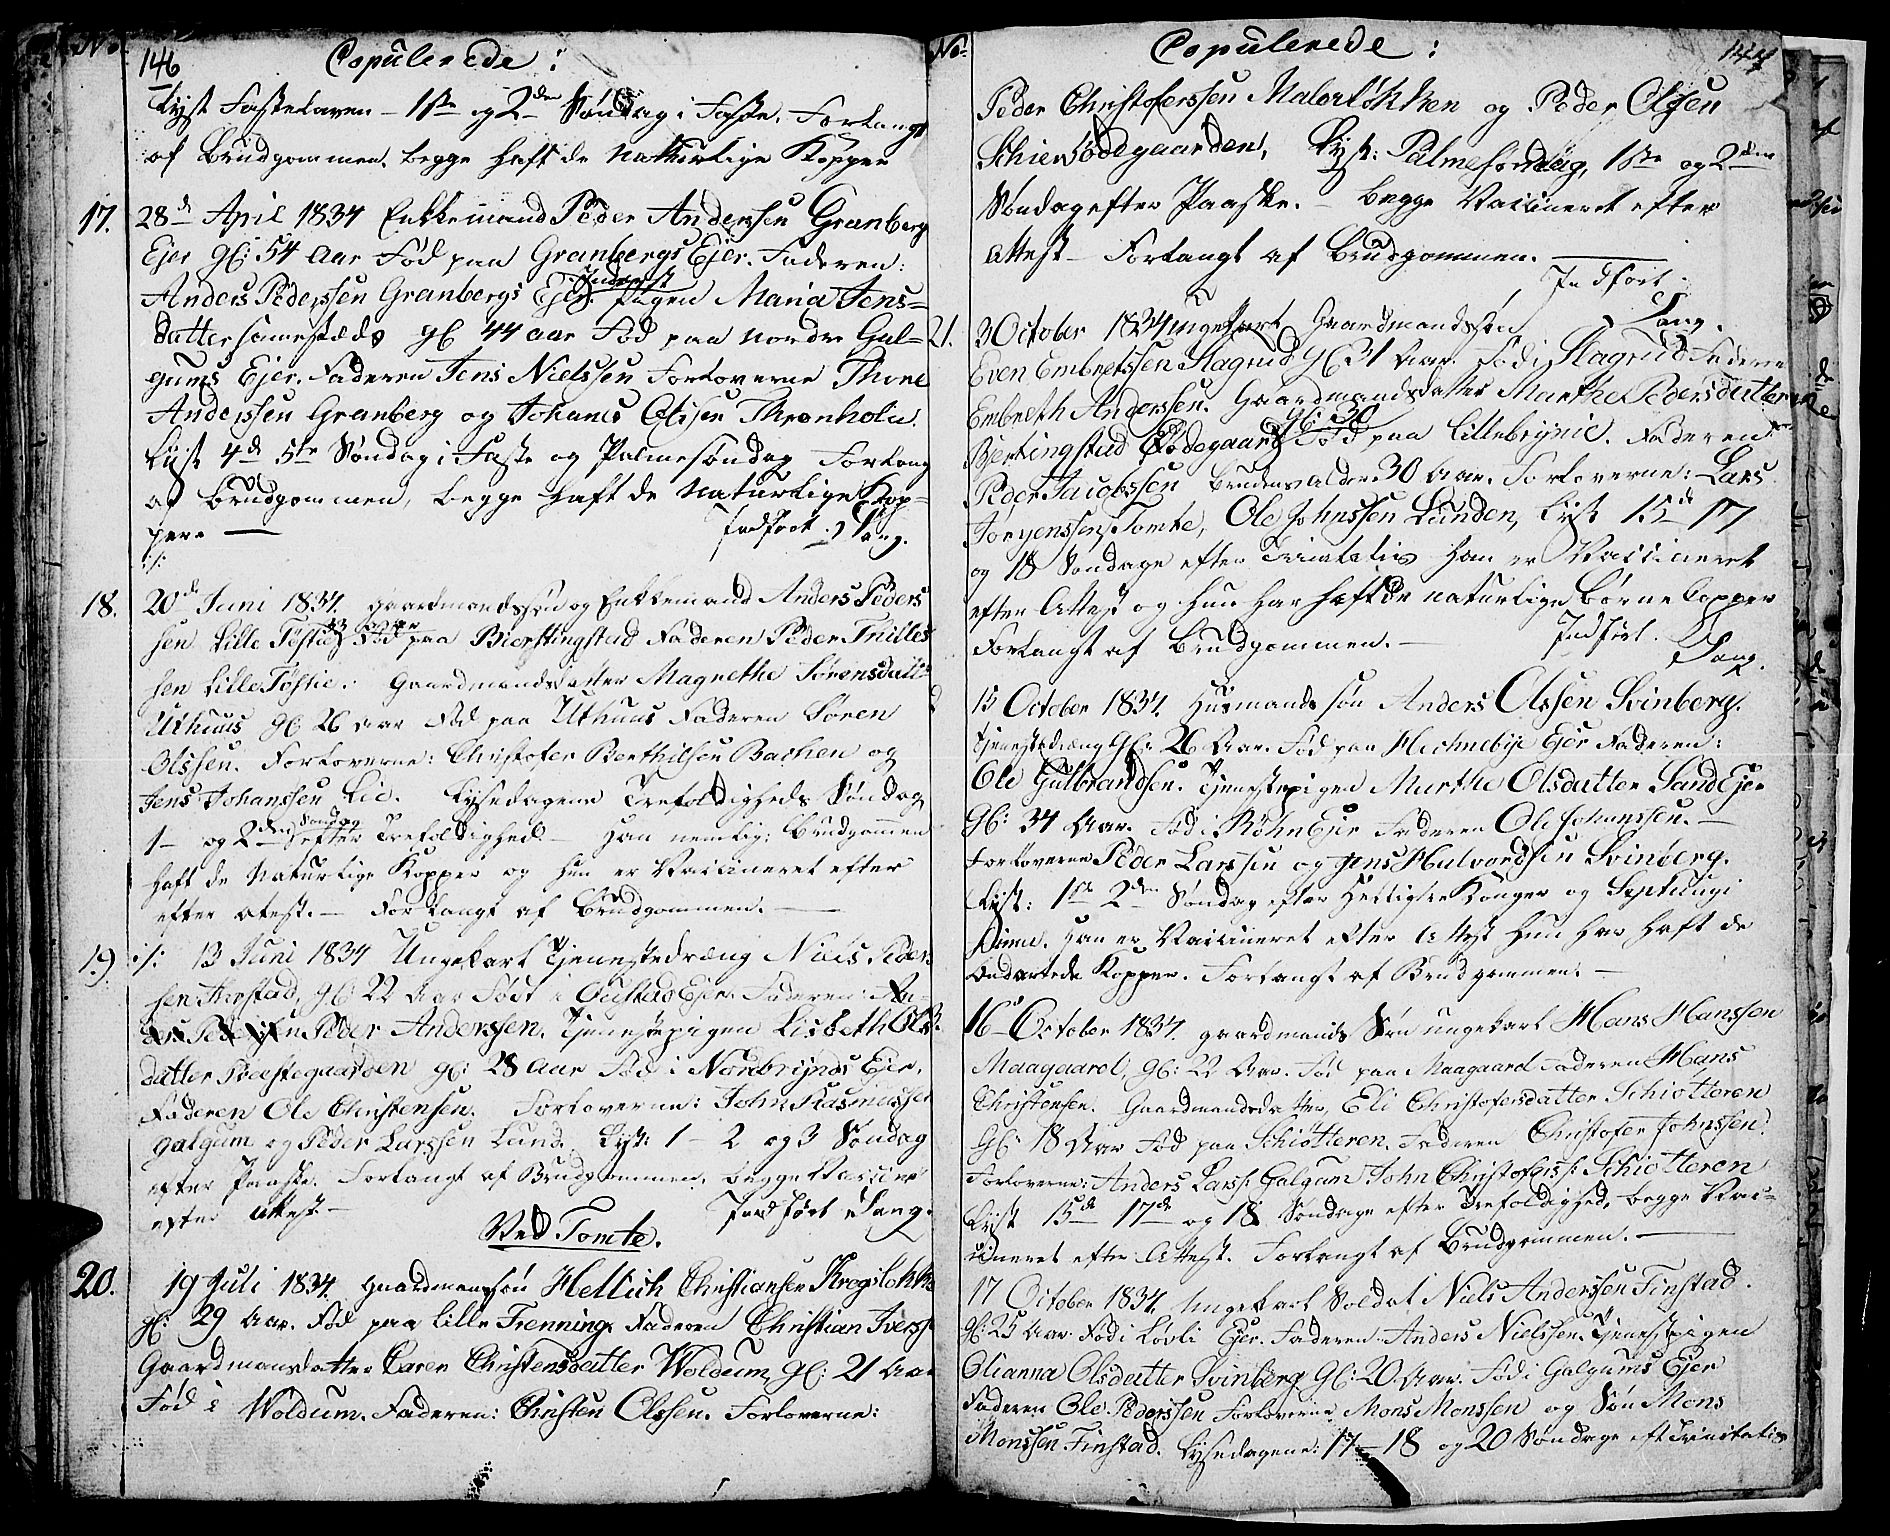 No. 146 Copulerede:
Lyst Fastelaven – 1ste og 2den Søndag i Faste. Forlangt
af Brudgommen. begge haft de naturlige Kopper
17. 28de April 1834 Enkkemand Peder Anderssen Granberg
Ejer gl: 54 Aar Fød paa Granbergs Ejer. Faderen:
Anders Pederssen Granbergs Ejer. Pigen Maria Jens=
datter samesteds gl 44 aar Fød paa nordre Gal=
gums Ejer. Faderen Jens Nielssen Forloverne Thore
Anderssen Granberg og Johanes Olssen Thronholn.
Lyst 4de 5te Søndag i Faste og Palmesøndag Forlang
af Brudgommen, begge haft de Naturlige Kop=
per. — Indført. Lang.
18. 20de Juni 1834. gaardmandssøn og Enkkemand Anders Peders
sen Lille Tøstie Fød paa Bierkingstad Faderen Peder Troilles
sen Lille Tøstie. Gaardmandsdatter Magnethe Sørensdatt
Uthuus gl 26 aar Fød paa Uthuus Faderen Søren
Olssen. Forloverne: Christofer Berthilsen Bachen og
Jens Johanssen Lie. Lysedagene Trefoldigheds Søndag
1– og 2den Søndag efter Trefoldighed – Han nemlig: Brudgommen
haft de Naturlige Kopper og Hun er Vaccineret efter
efter atest. – Forlangt af Brudgommen. —
19) ./. 13 Juni 1834 Ungekarl Tjenestedræng Niels Peder
sen gl: 22 Aar Født i Ejer. Faderen:
Peder Anderssen. Tjenestepigen Lisbeth Ols
datter Præstegaarden gl: 28 Aar Fød i Nordbrynds Ejer.
Faderen Ole Christensen. Forloverne: John Rasmussen
Galgum og Peder Larssen Lund. Lyst: 1– 2 og 3 Søndag
efter Paaske. Forlangt af Brudgommen, begge Vaccine
efter Attest – Indført Lang.
Ved Tomte.
20. 19 Juli 1834. gaardmandssøn Hellich Christiansen Krogsløkke
gl: 29 Aar. Fød paa Lille Frenning. Faderen Christian Iverss:
Gaardmandsdatter Caren Christensdatter Woldum gl: 21 Aar
Fød i Woldum. Faderen: Christen Olssen. Forloverne:
No. Copulerede: 147
Peder Christoferssen Malerløkken og Peder Olsen
Schiersødegaarden, Lyst: Palmesøndag, 1ste og 2den
Søndag efter Paaske. – begge Vaccineret efter
Attest – Forlangt af Brudgommen. —
Indført
Lang.
21. 3 October 1834 ungekarl Gaardmandssøn
Even Embretssen Slagrud gl 31 Aar. Fød i Slagrud Faderen
Embreth Anderssen. Gaardmandsdatter Marthe Pedersdatter
gl: 30
Bjerkingstad Ødegaard Fød paa Lillebrynie. Faderen
Peder Jacobssen brudens alder 30 Aar. Forloverne: Lars
Jorgenssen Tomte, Ole Johnssen Lunden, Lyst 15de 17
og 18 Søndage efter Trinitatis Han er Vaccineret
efter Attest og Hun har haft de naturlige Børnekopper
Forlangt af Brudgommen. – Indført.
Lang.
15 October 1834. Husmands søn Anders Olssen Svinberg.
Tjenestedræng gl: 26 Aar. Fød paa Michnebye Ejer Faderen:
Ole Gulbrandsen. Tjenestepigen Marthe Olsdatter Sand Ejer
gl: 34 Aar. Fød i Røhn Ejer Faderen Ole Johanssen. –
Forloverne Peder Larssen og Jens Halvordsen Svinberg.
Lyst: 1ste 2den Søndag efter Hellige tre Konger og Septuagi
sima. Han er Vaccineret efter Attest Hun har haft de
Kopper. Forlangt af Brudgommen. –
16 – October 1834. gaardmands Søn ungekarl Hans Hanssen
Maagaard, gl: 22 Aar. Fød paa Maagaard Faderen Hans
Christensen. Gaardmandsdatter, Eli Christofersdatter Schiotteren
gl: 18 Aar Fød paa Schiøtteren. Faderen Christofer Johnssen.
Forloverne: Anders Larss: Galgum John Christoferss: Schiøtteren
Lyst 15de 17de og 18 Søndage efter Trefoldighed, begge Vac=
cineret efter Attest. Forlangt af Brudgommen. —
17 October 1834. Ungekarl Soldat Niels Anderssen Finstad.
gl: 25 Aar. Fød i Løvli Ejer. Faderen. Anders Nielssen. Tjenestpigen
Olianna Olsdatter Svinberg gl: 20 Aar. Fød i Galgums Ejer
Faderen Ole Pederssen Forloverne Mons Monssen og Søn Mons
Monssen Finstad. Lysedagene: 17 – 18 og 20 Søndage eft Trinitatis